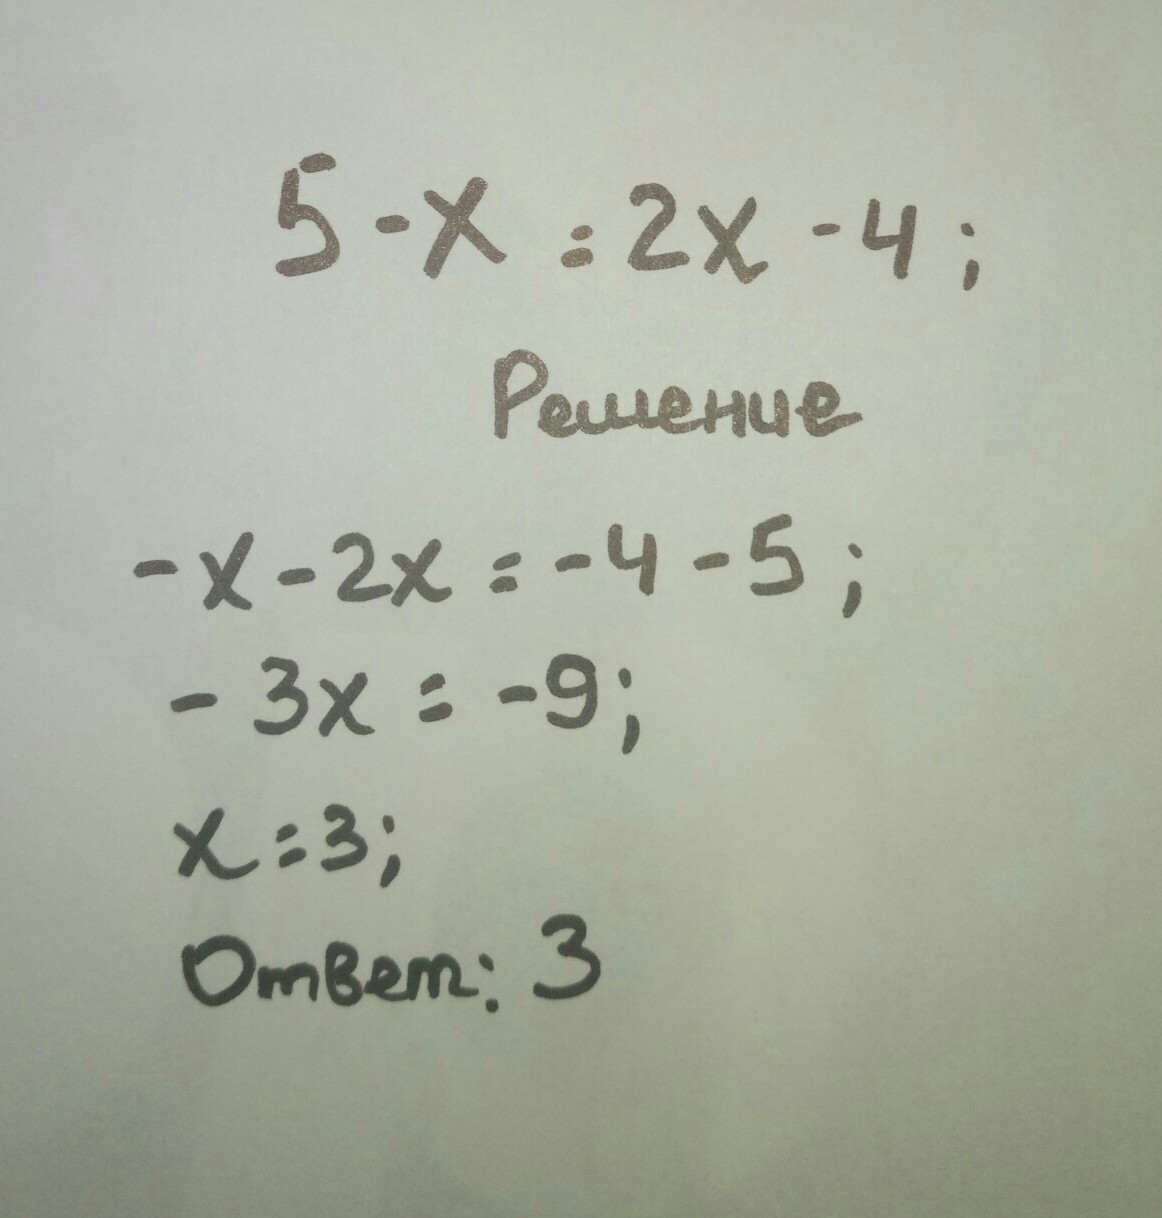 5-x=2x-4;
Решение
-x-2x=-4-5;
-3x=-9;
x=3;
Ответ: 3